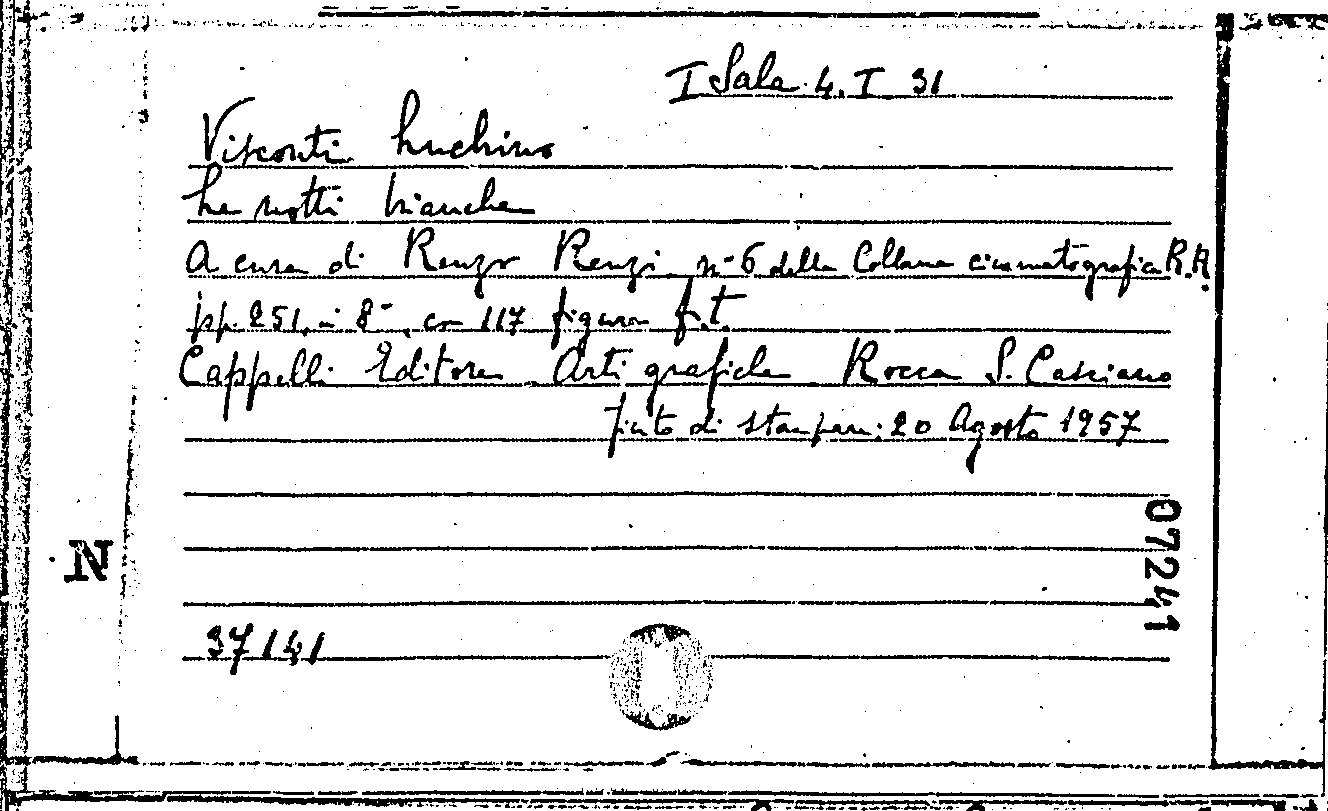 I Sala 4. I 31
Visconti Luchino
Le notti bianche
A cura di Renzo Renzi n° 6 della Collana cinematografica R.R.
pp. 251, in 8°, con 117 figure f.t.
Cappelli Editore Arti grafiche Rocca S. Casciano
finito di stampare: 20 Agosto 1957
07241
N
37141